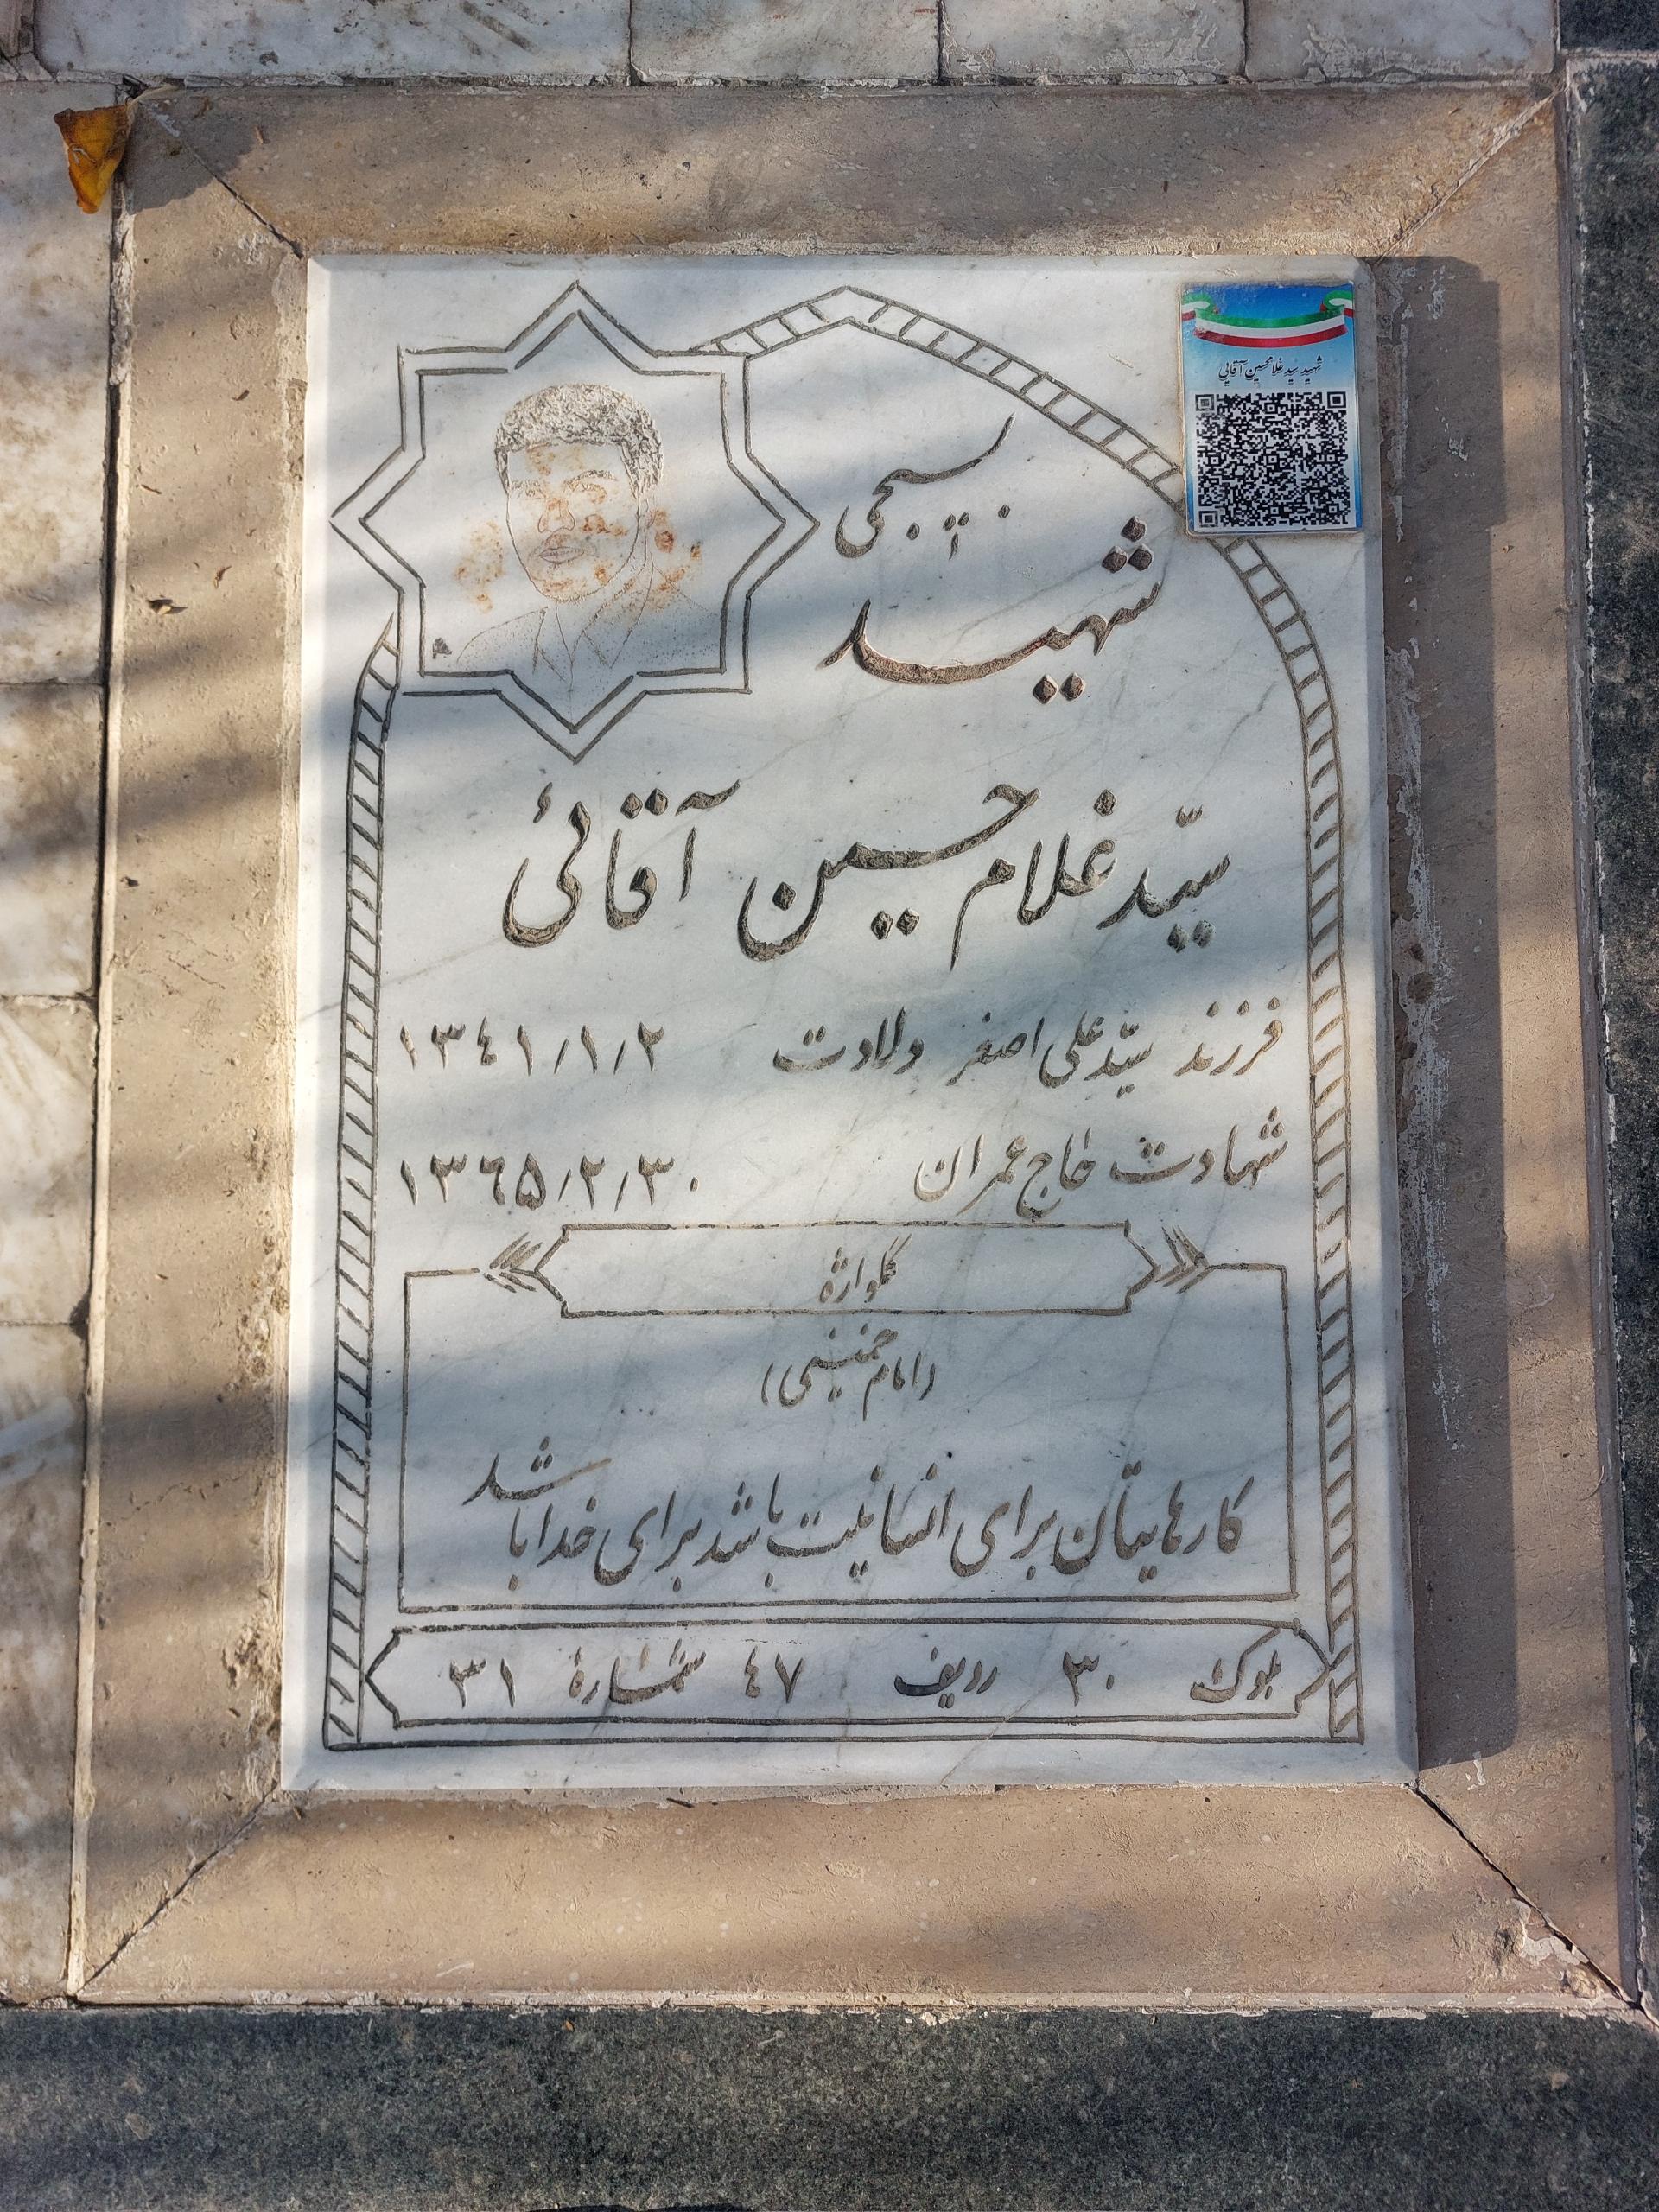 شهید سید غلامحسین آقایی
بسیجی
شهید
سیّد غلام حسین آقائی
فرزند سیّد علی اصغر ولادت ۱۳۴۱/۱/۲
شهادت حاج عمران ۱۳۶۵/۲/۳۰
گلواژهٔ
(امام خمینی)
کارهایتان برای انسانیت باشد برای خدا باشد
بلوک ۳۰ ردیف ۴۷ شمارهٔ ۳۱